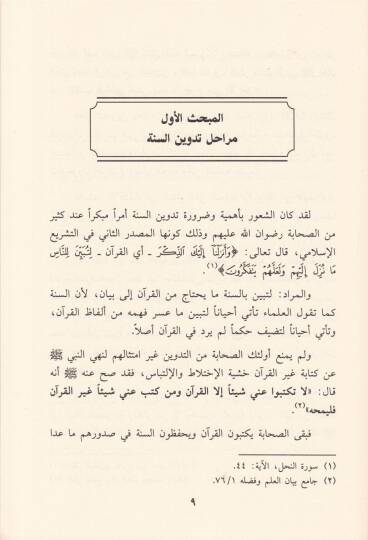 المبحث الأول
مراحل تدوين السنة
لقد كان الشعور بأهمية وضرورة تدوين السنة أمراً مبكراً عند كثير
من الصحابة رضوان الله عليهم وذلك كونها المصدر الثاني في التشريع
الإسلامي، قال تعالى: ﴿وَأَنزَلْنَا إِلَيْكَ الذِّكْرَ - أي القرآن - لِتُبَيِّنَ لِلنَّاسِ
مَا نُزِّلَ إِلَيْهِمْ وَلَعَلَّهُمْ يَتَفَكَّرُونَ﴾(١).
والمراد: لتبين بالسنة ما يحتاج من القرآن إلى بيان، لأن السنة
كما تقول العلماء تأتي أحياناً لتبين ما عسر فهمه من ألفاظ القرآن،
وتأتي أحياناً لتضيف حكماً لم يرد في القرآن أصلاً.
ولم يمنع أولئك الصحابة من التدوين غير امتثالهم لنهي النبي ﷺ
عن كتابة غير القرآن خشية الإختلاط والإلتباس، فقد صح عنه ﷺ أنه
قال: «لا تكتبوا عني شيئاً إلا القرآن ومن كتب عني شيئاً غير القرآن
فليمحه»(٢).
فبقى الصحابة يكتبون القرآن ويحفظون السنة في صدورهم ما عدا
(١) سورة النحل، الآية: ٤٤.
(٢) جامع بيان العلم وفضله ٧٦/١.
٩